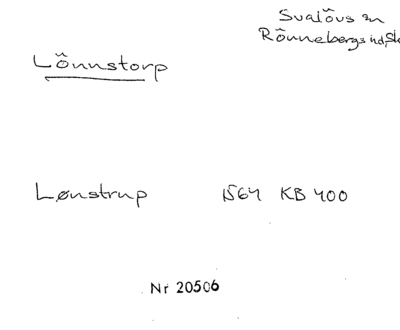 Svalövs sn
Rönnebergs hd, Sk
Lönnstorp
Lønstrup 1564 KB 400
Nr 20506